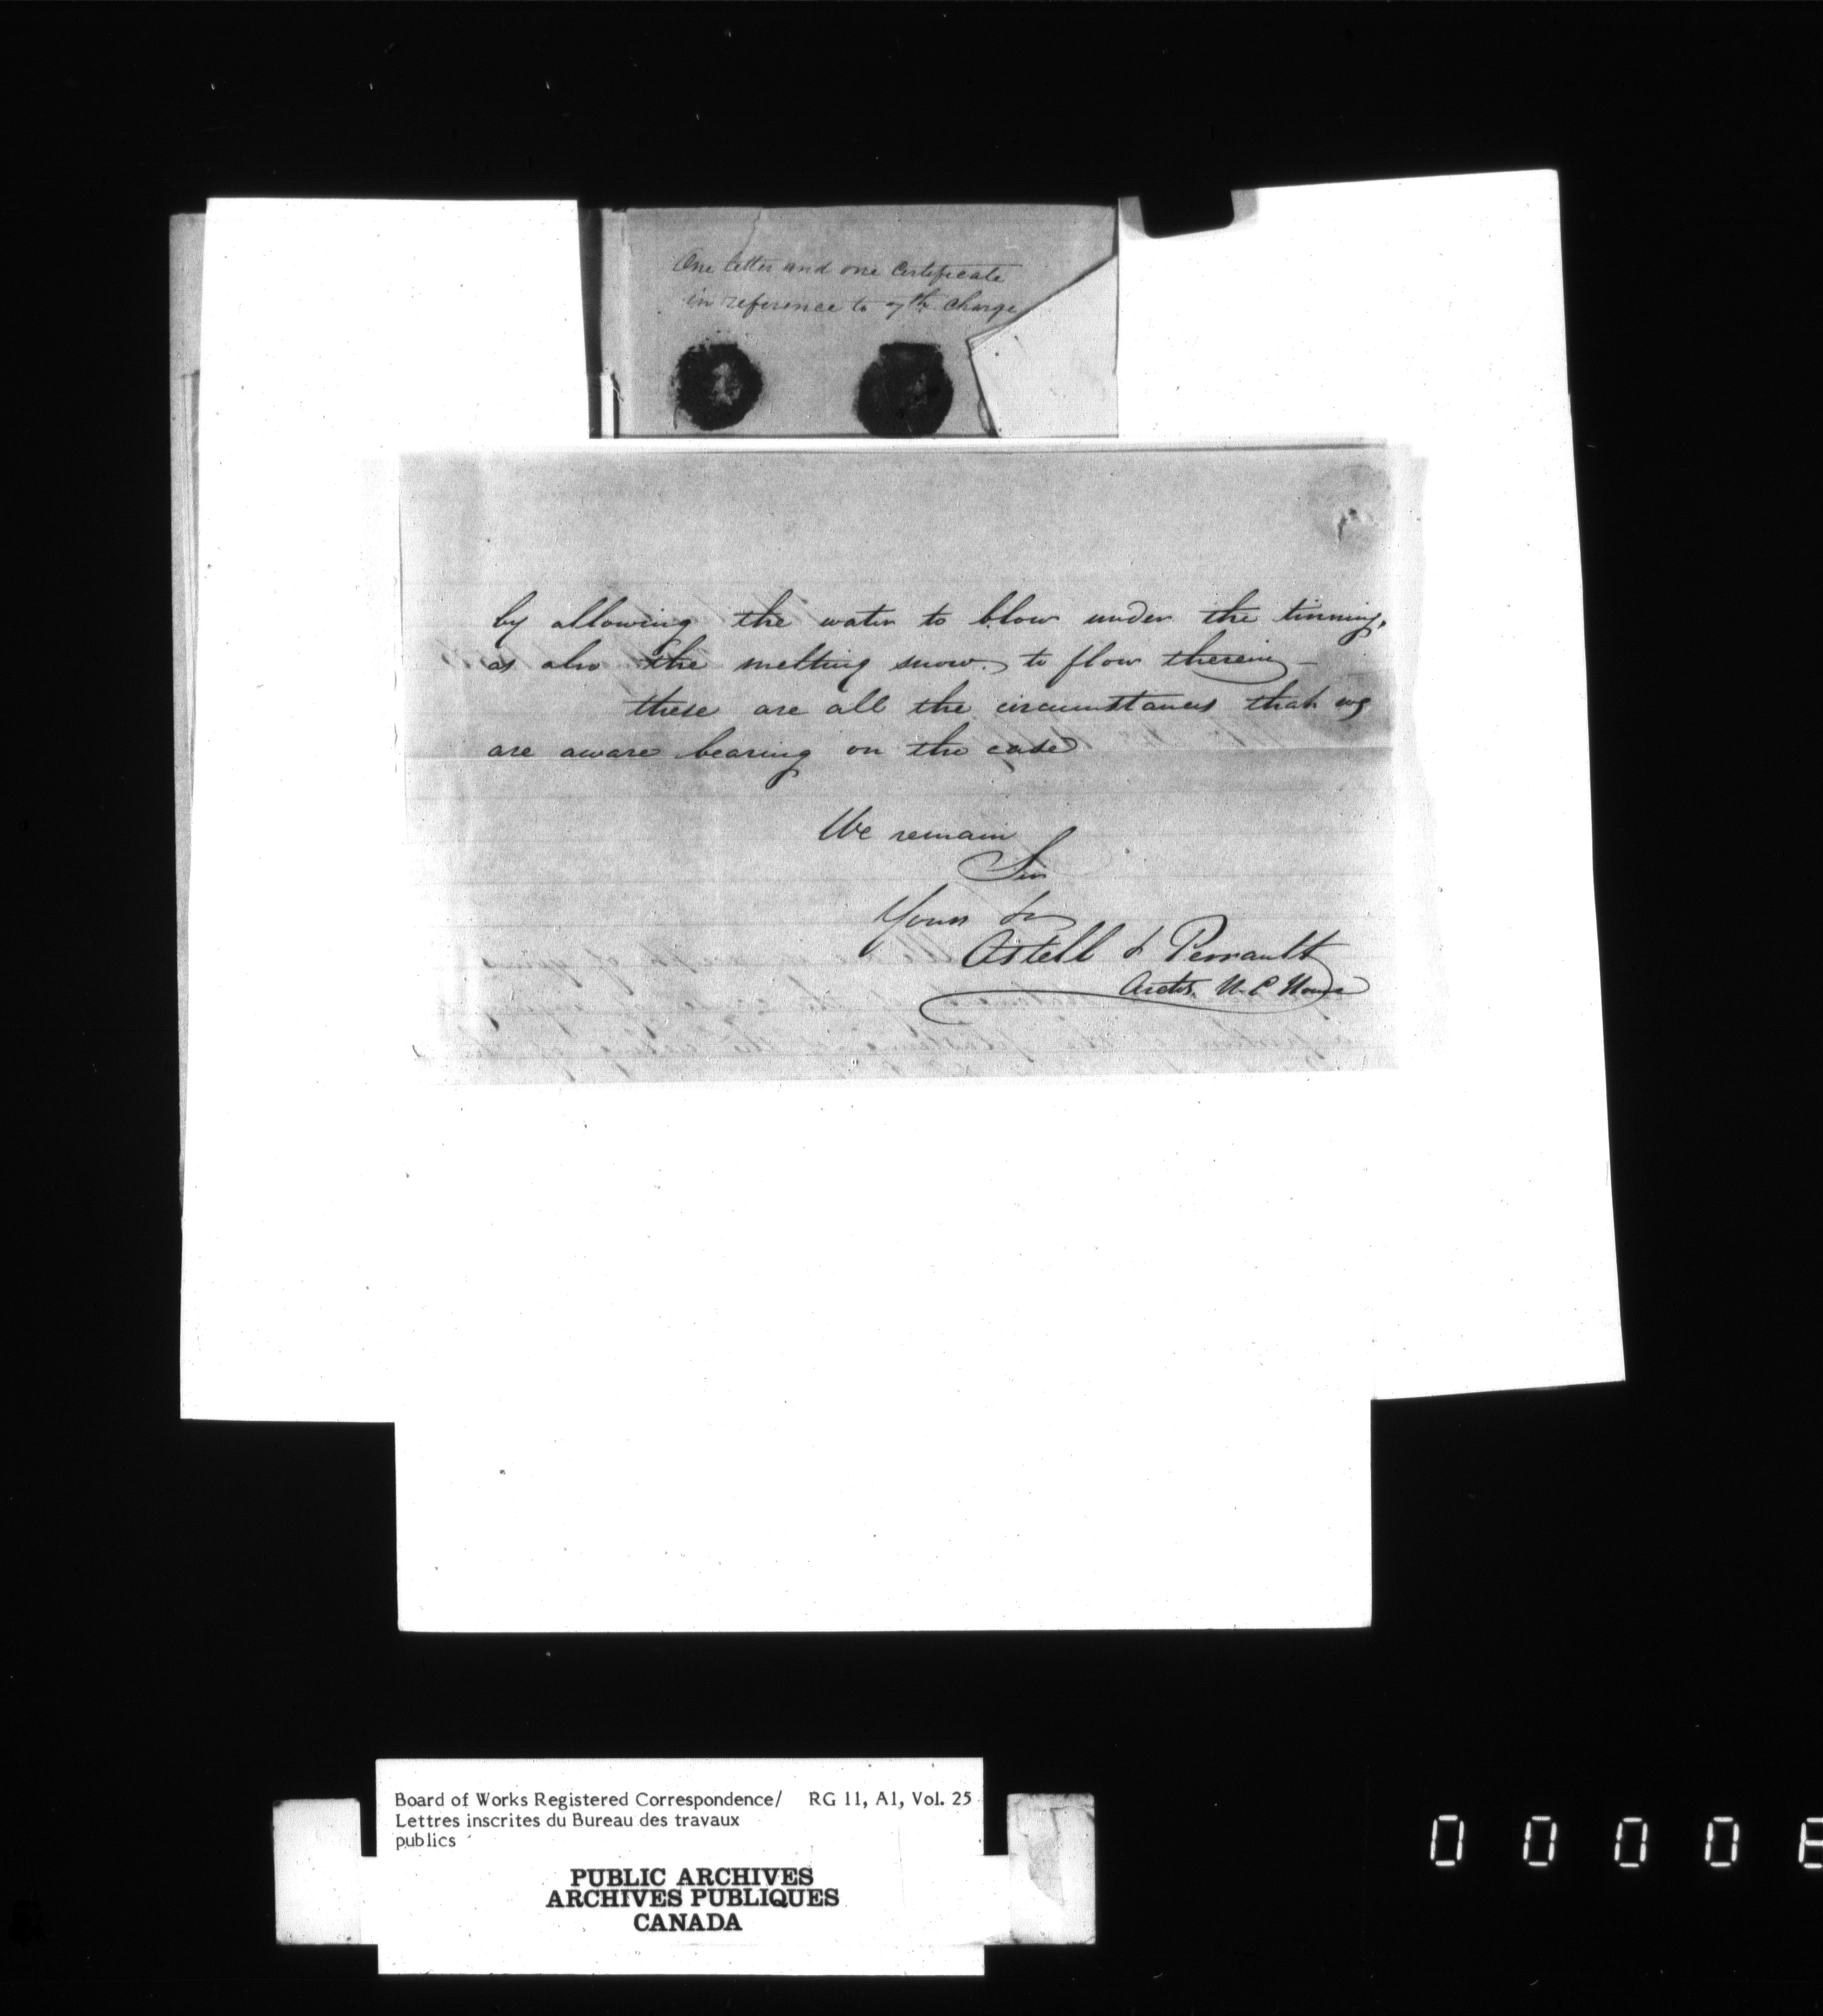 One letter and one Certificate
in reference to 7th Charge
by allowing the water to blow under the tinning,
as also the melting snow to flow therein –
these are all the circumstances that we
are aware bearing on the case
We remain
Sir
Yours &c
Ostell & Perrault
Archts.
Board of Works Registered Correspondence/ RG 11, A1, Vol. 25
Lettres inscrites du Bureau des travaux
publics
PUBLIC ARCHIVES
ARCHIVES PUBLIQUES
CANADA
0 0 0 0